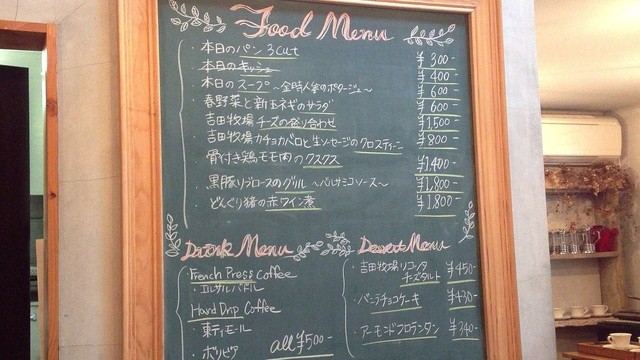 Food Menu
本日のパン 3cut ¥300-
本日のキッシュ ¥400-
本日のスープ 〜金時人参のポタージュ〜 ¥600-
春野菜と新玉ネギのサラダ ¥600-
吉田牧場 チーズの盛り合わせ ¥1,500-
吉田牧場カチョカバロと生ソーセージのクロスティーニ ¥800-
骨付き鶏モモ肉のクスクス ¥1,400-
黒豚リブロースのグリル 〜バルサミコソース〜 ¥1,800-
どんぐり猪の赤ワイン煮 ¥1,800-
Drink Menu
French Press Coffee
・エルサルバドル
Hand Drip Coffee
・東ティモール
・ボリビア
all ¥500-
Dessert Menu
・吉田牧場リコッタ
チーズタルト ¥450-
・バニラチョコケーキ ¥430-
・アーモンドフロランタン ¥240-